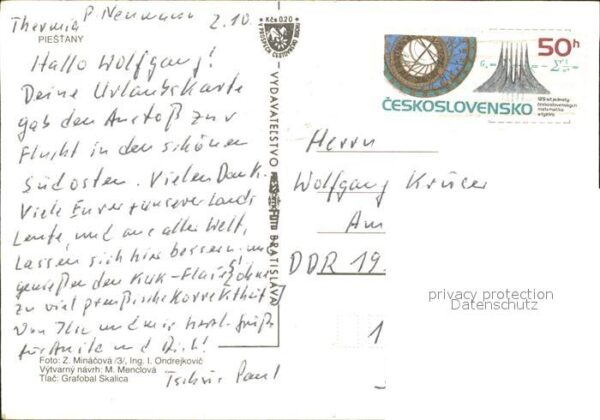 Thermia P. Neumann 2.10.
PIEŠŤANY
Hallo Wolfgang!
Deine Urlaubskarte
gab den Anstoß zur
Flucht in den schönen
Südosten. Vielen Dank.
Viele Eurer + unserer Lands
Leute, und aus aller Welt,
lassen sich hier bessern und
genießen den KUK-Flair ohne
zu viel preußische Korrektheit
Von und mir herzl. Grüße
für und Dich!
Foto: Z. Mináčová /3/, Ing. I. Ondrejkovič
Výtvarný návrh: M. Menclová
Tlač: Grafobal Skalica
Tschüs Paul
Kčs 0,20
V PROSPECH CESTOVNÉHO RUCHU
VYDAVATEĽSTVO
BRATISLAVA
50h
ČESKOSLOVENSKO
125 let jednoty
československých
matematiků
a fyziků
Herrn
Wolfgang Krüger
Am
DDR 19
1
privacy protection
Datenschutz